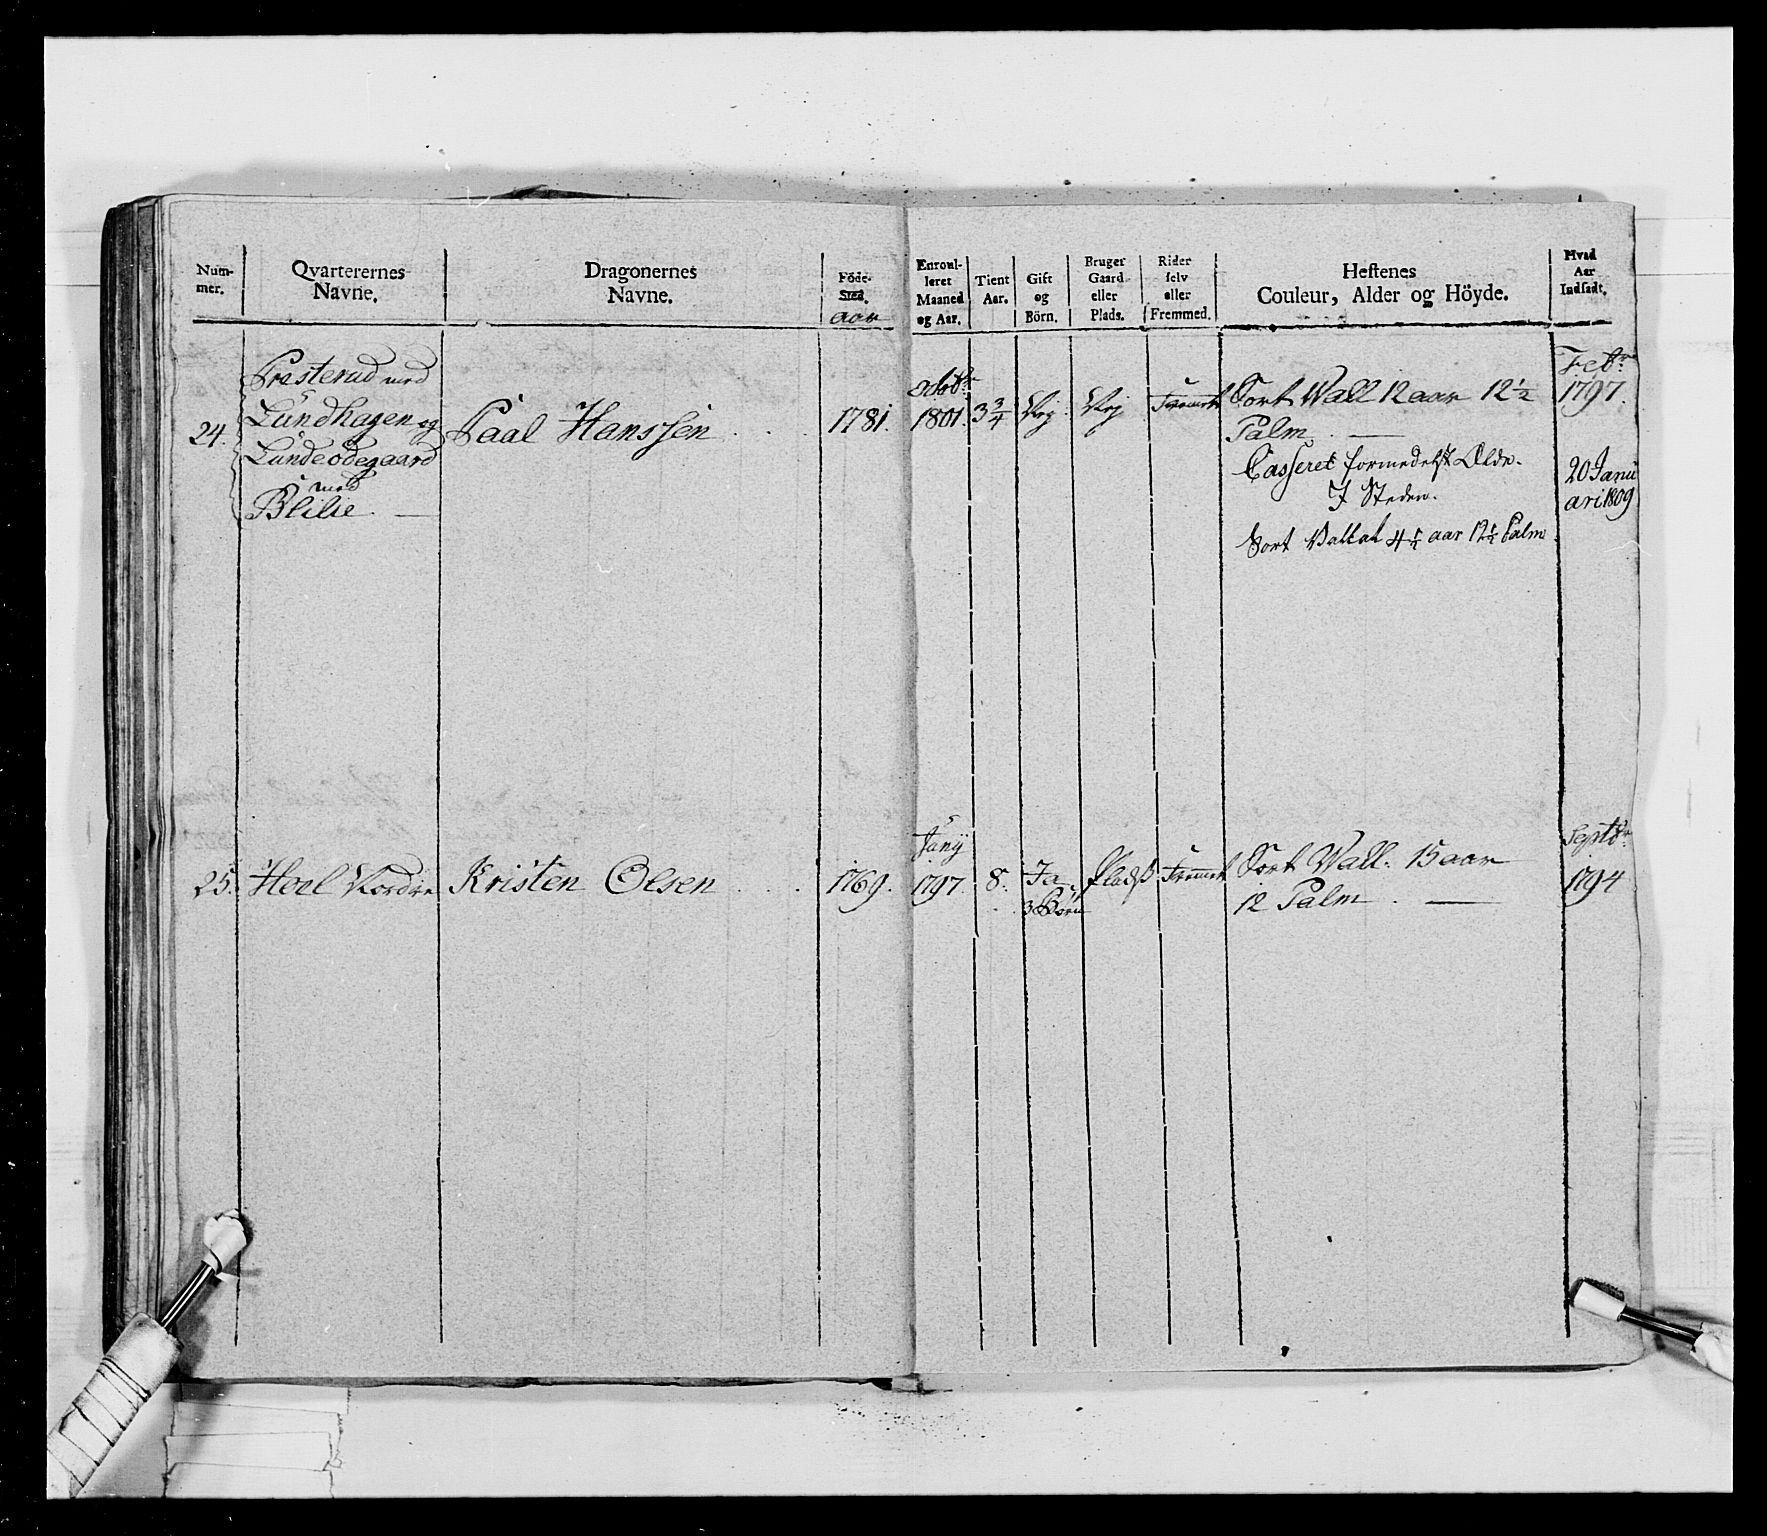 Num-
mer.
Qvarterernes
Navne.
Dragonernes
Navne.
Föde-
Sted.
aar
Enroul-
leret
Maaned
og Aar.
Tient
Aar.
Gift
og
Börn.
Bruger
Gaard
eller
Plads.
Rider
selv
eller
Fremmed.
Hestenes
Couleur, Alder og Höyde.
Hvad
Aar
Indsadt.
24.
Presterud med
Lundhagen og
Lundeödegaard
med
Blilie.
Paal Hanssen
1781.
Octbr
1801.
3 3/4
Nej
Nej
Fremet
Sort Wall 12 aar 12 1/2
Palm.
Casseret formedelst Ælde.
I Steden.
Sort Vallak 4 1/2 aar 12 1/2 Palm
Febr
1797.
20 Janu
ari 1809
25.
Hoel Nordre
Kristen Olsen
1769.
Junij
1797.
8.
Ja
3 Börn
Plads
Fremet
Sort Wall. 15 aar
12 Palm.
Septbr
1794